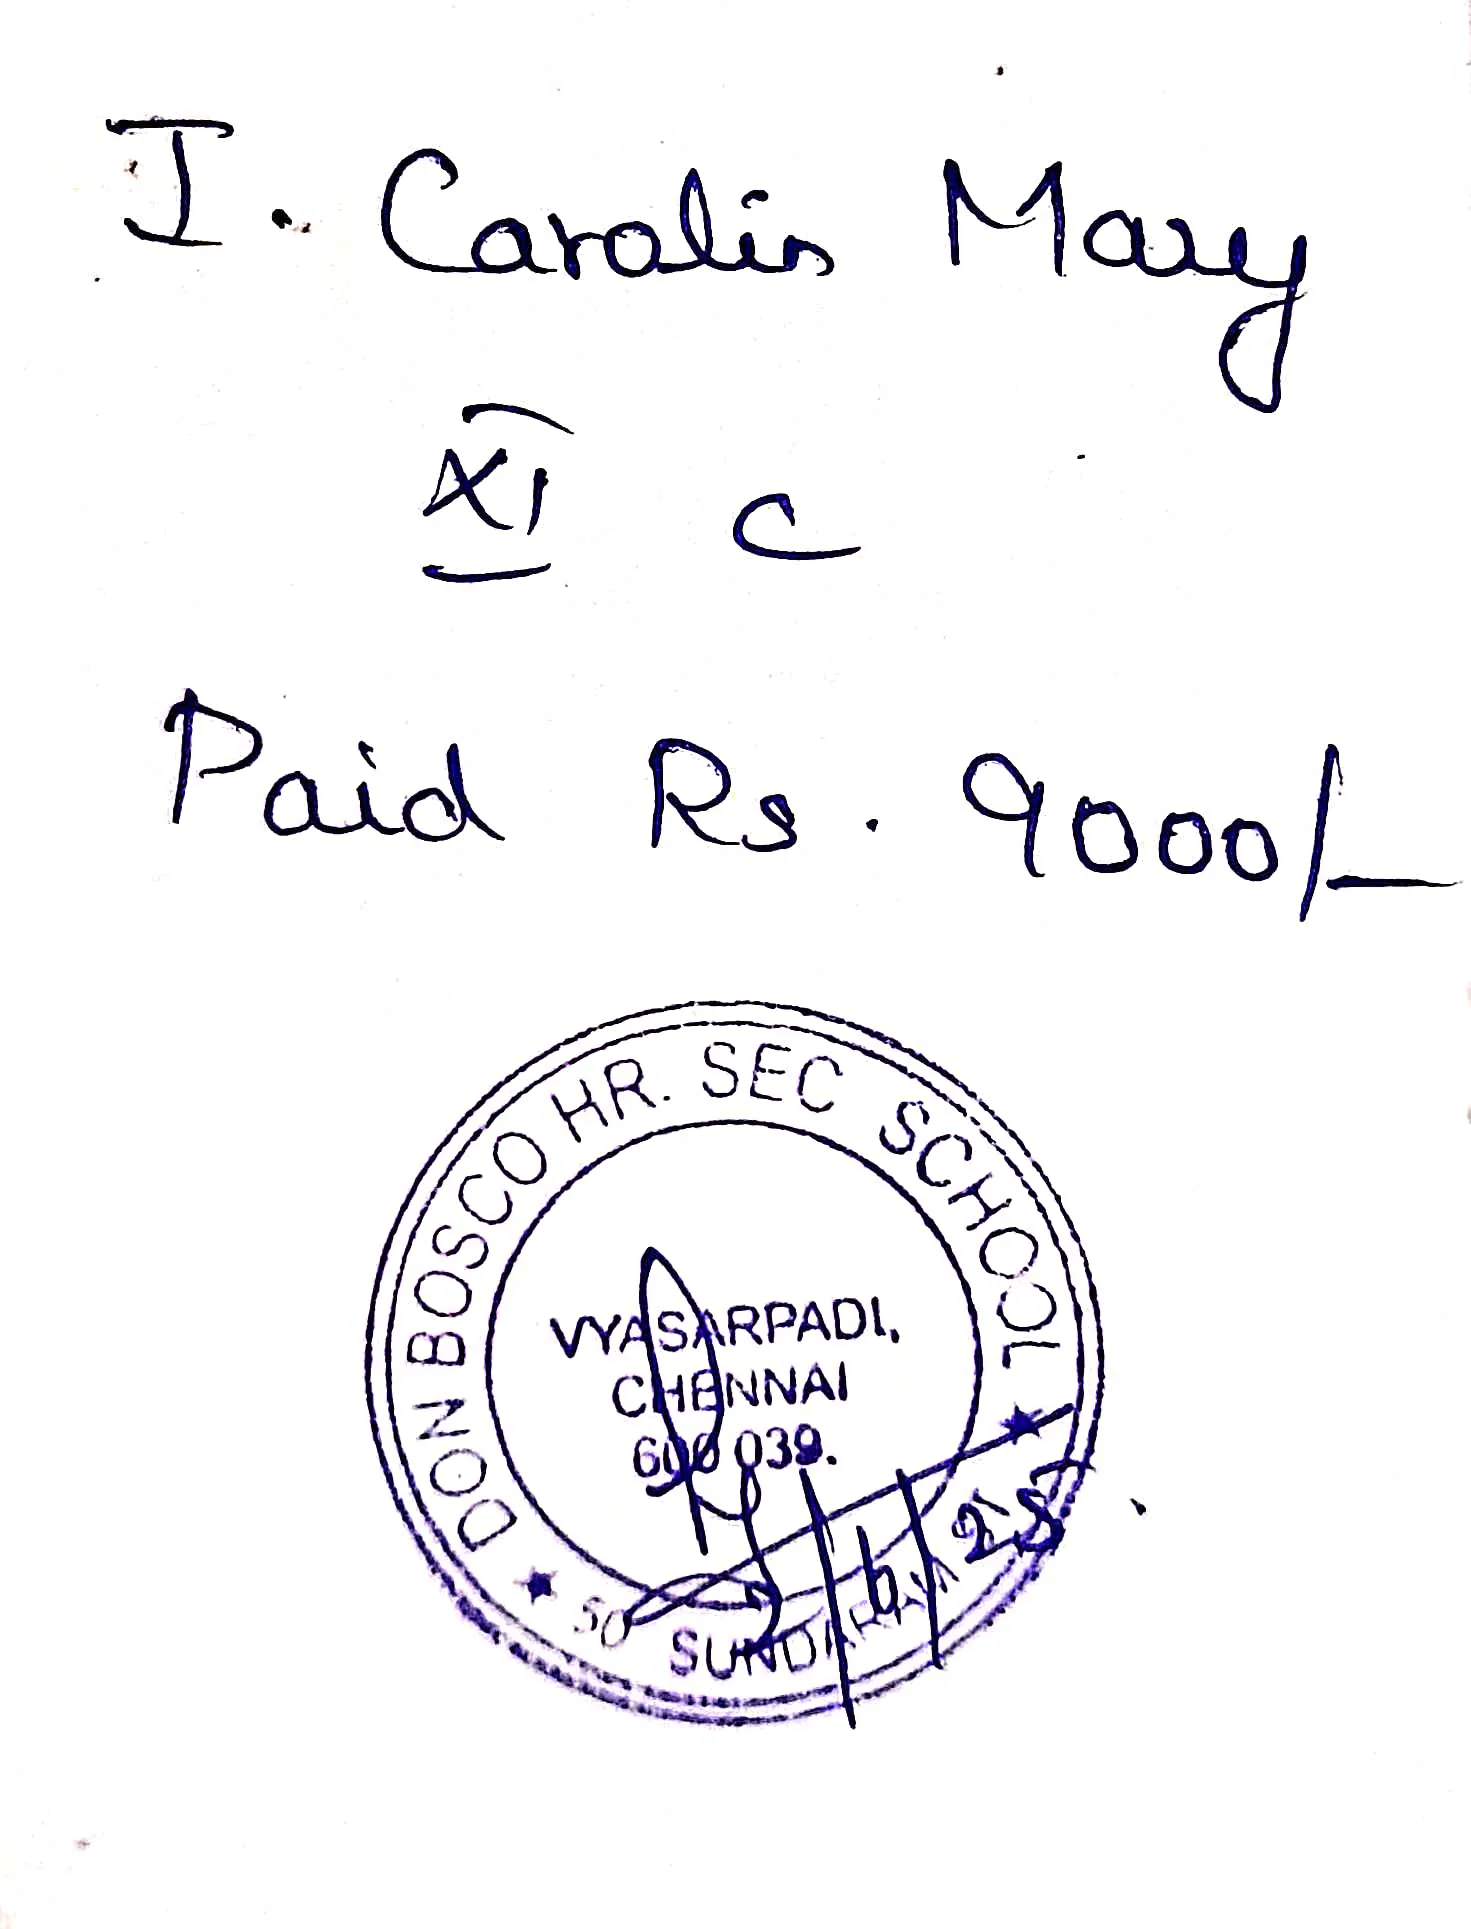 I. Carolin Mary
XI C
Paid Rs. 9000/-
DON BOSCO HR. SEC SCHOOL
VYASARPADI,
CHENNAI
600 039.
/6/25
SUNDARAM